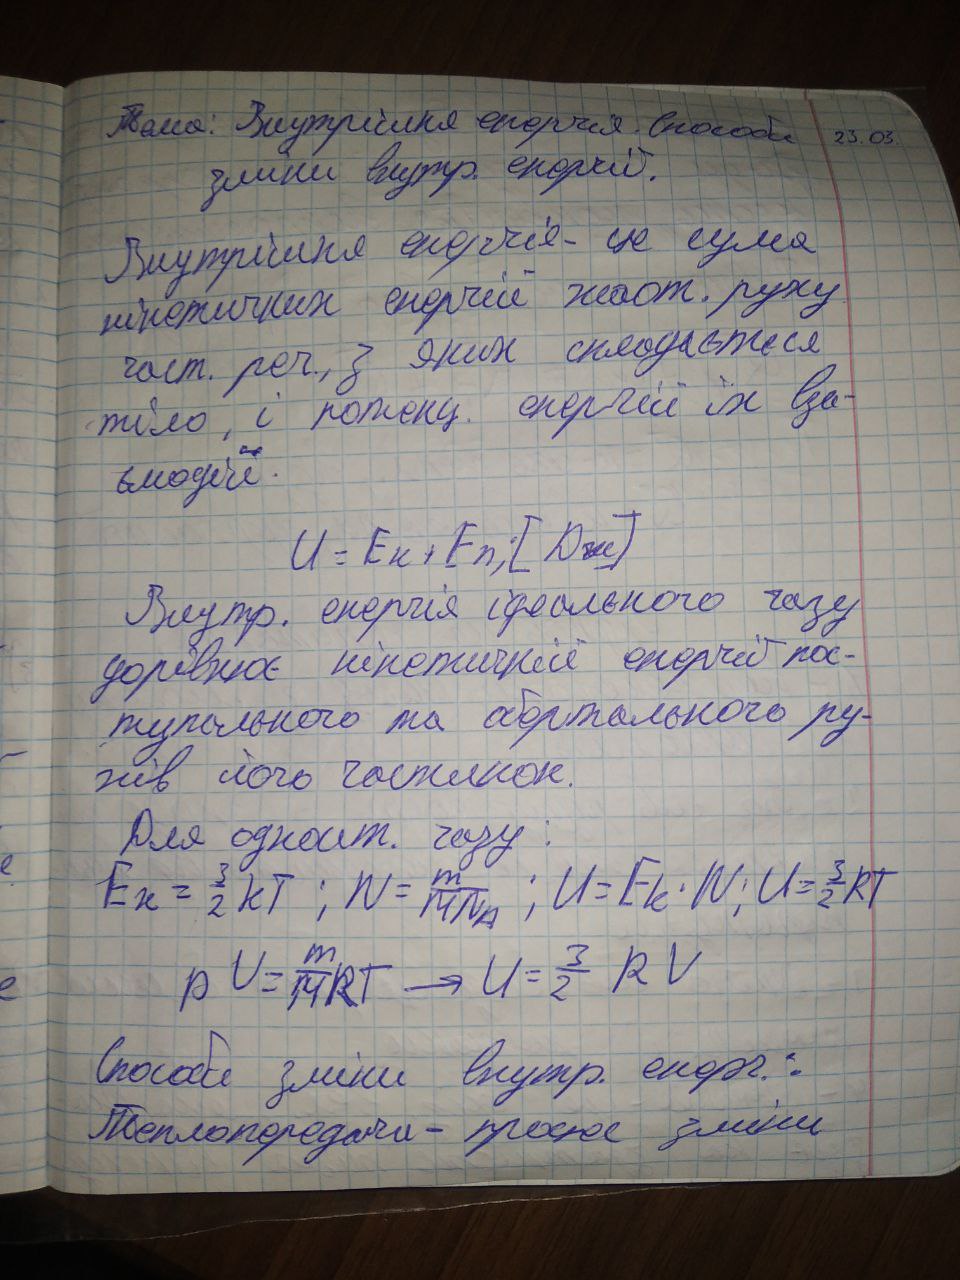 Тема: Внутрішня енергія. Способи 23.03.
зміни внутр. енергії.
Внутрішня енергія - це сума
кінетичних енергій хаот. руху
част. реч., з яких складається
тіло, і потенц. енергії їх вза-
ємодії.
U = Eк + Eп; [Дж]
Внутр. енергія ідеального газу
дорівнює кінетичній енергії пос-
тупального та обертального ру-
хів його частинок.
Для одноат. газу:
Eк = 3/2 kT ; N = m/M NA ; U = Ek · N; U = 3/2 RT
p U = m/M RT → U = 3/2 R V
Способи зміни внутр. енерг.:
Теплопередача - процес зміни